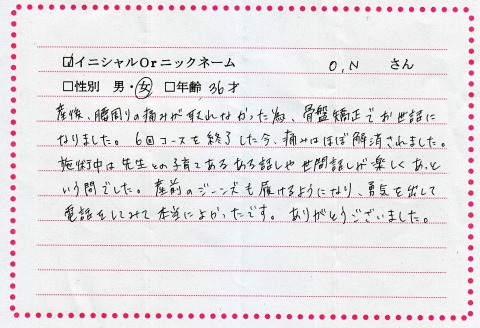 ☑イニシャルOrニックネーム O.N さん
□性別 男・女 □年齢 36才
産後、腰周りの痛みが取れなかった為、骨盤矯正でお世話に
なりました。6回コースを終了した今、痛みはほぼ解消されました。
施術中は先生との子育てあるある話しや世間話しが楽しくあっと
いう間でした。産前のジーンズも履けるようになり、勇気を出して
電話をしてみて本当によかったです。ありがとうございました。